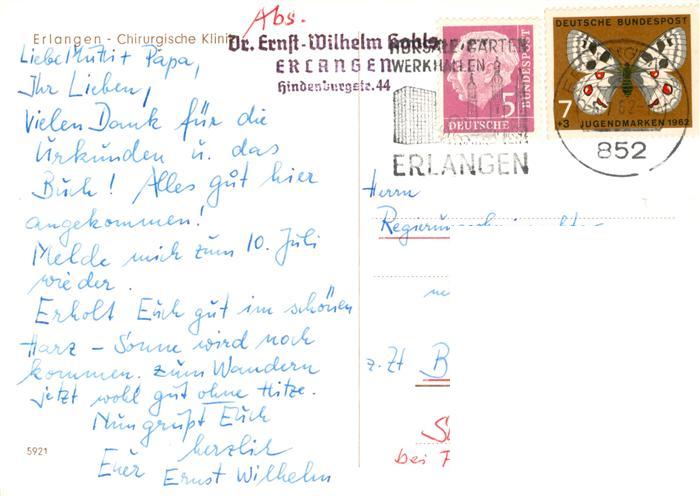 Abs.
Erlangen - Chirurgische Klinik
Dr. Ernst-Wilhelm
ERLANGEN
Hindenburgstr. 44
HÖRSÄLE GÄRTEN
WERKHALLEN
ERLANGEN
5
DEUTSCHE
BUNDESPOST
DEUTSCHE BUNDESPOST
7
+3 JUGENDMARKEN 1962
852
Liebe Mutti + Papa,
Ihr Lieben,
Vielen Dank für die
Urkunden u. das
Buch! Alles gut hier
angekommen!
Melde mich zum 10. Juli
wieder.
Erholt Euch gut im schönen
Harz - Sonne wird noch
kommen. zum Wandern
jetzt wohl gut ohne Hitze.
Nun grüßt Euch
herzlich
Euer Ernst Wilhelm
5921
Herrn
z. Zt B
bei